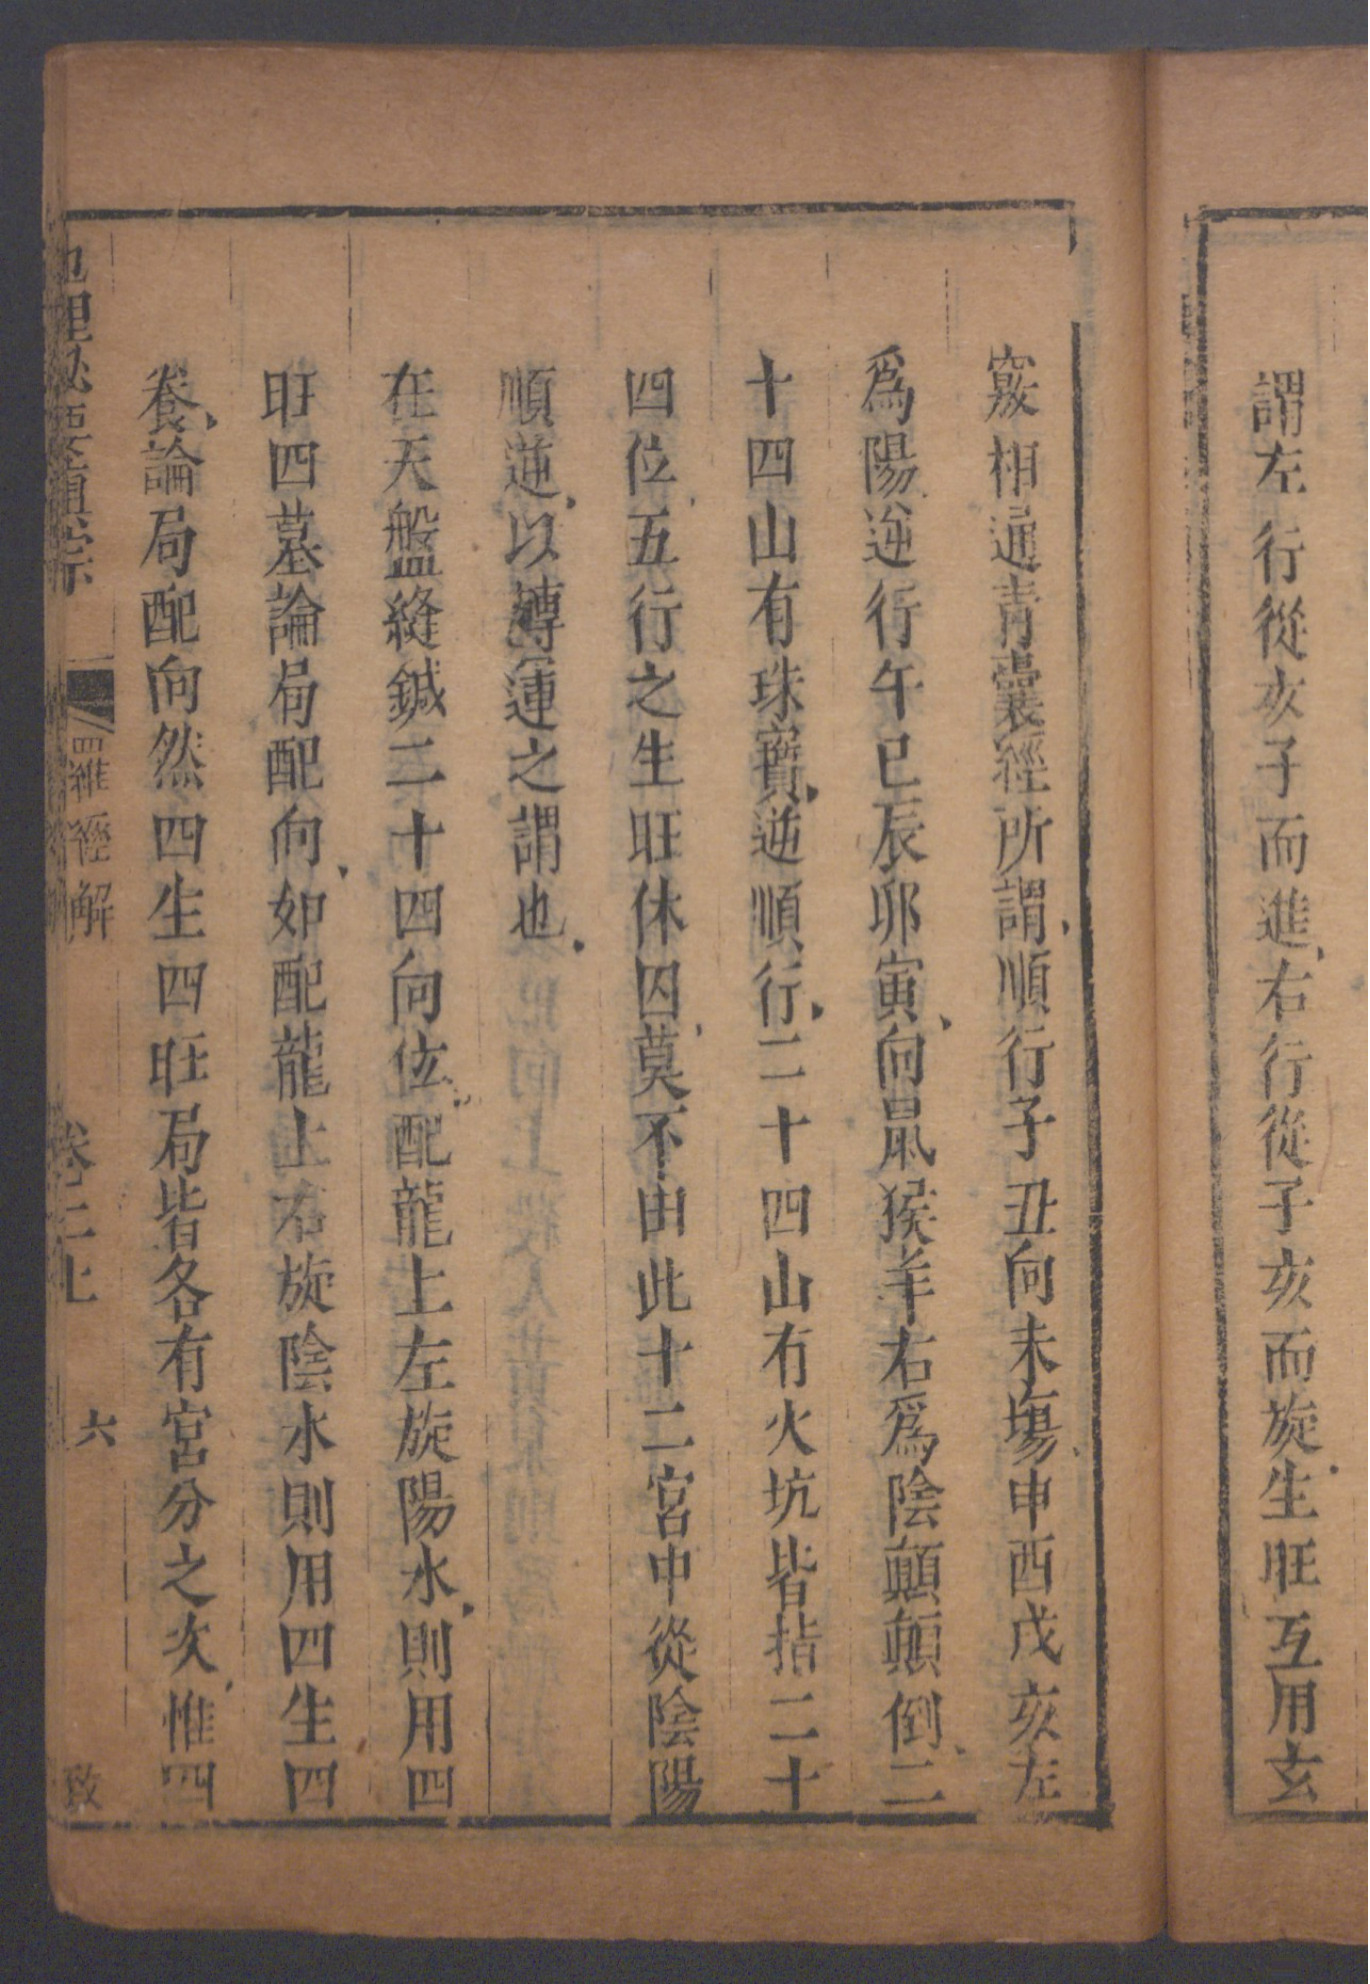 謂左行從亥子而進右行從子亥而旋生旺互用玄
竅相通青囊經所謂順行子丑向未塲申酉戌亥左
爲陽逆行午巳辰卯寅向鼠猴羊右爲陰顛顛倒二
十四山有珠寶逆順行二十四山有火坑皆指二十
四位五行之生旺休囚莫不由此十二宮中從陰陽
順逆以轉運之謂也
在天盤縫鍼二十四向位配龍上左旋陽水則用四
旺四墓論局配向如配龍上右旋陰水則用四生四
養論局配向然四生四旺局皆各有宮分之次惟四
地理秘要直宗 羅經解 卷二上 六 致